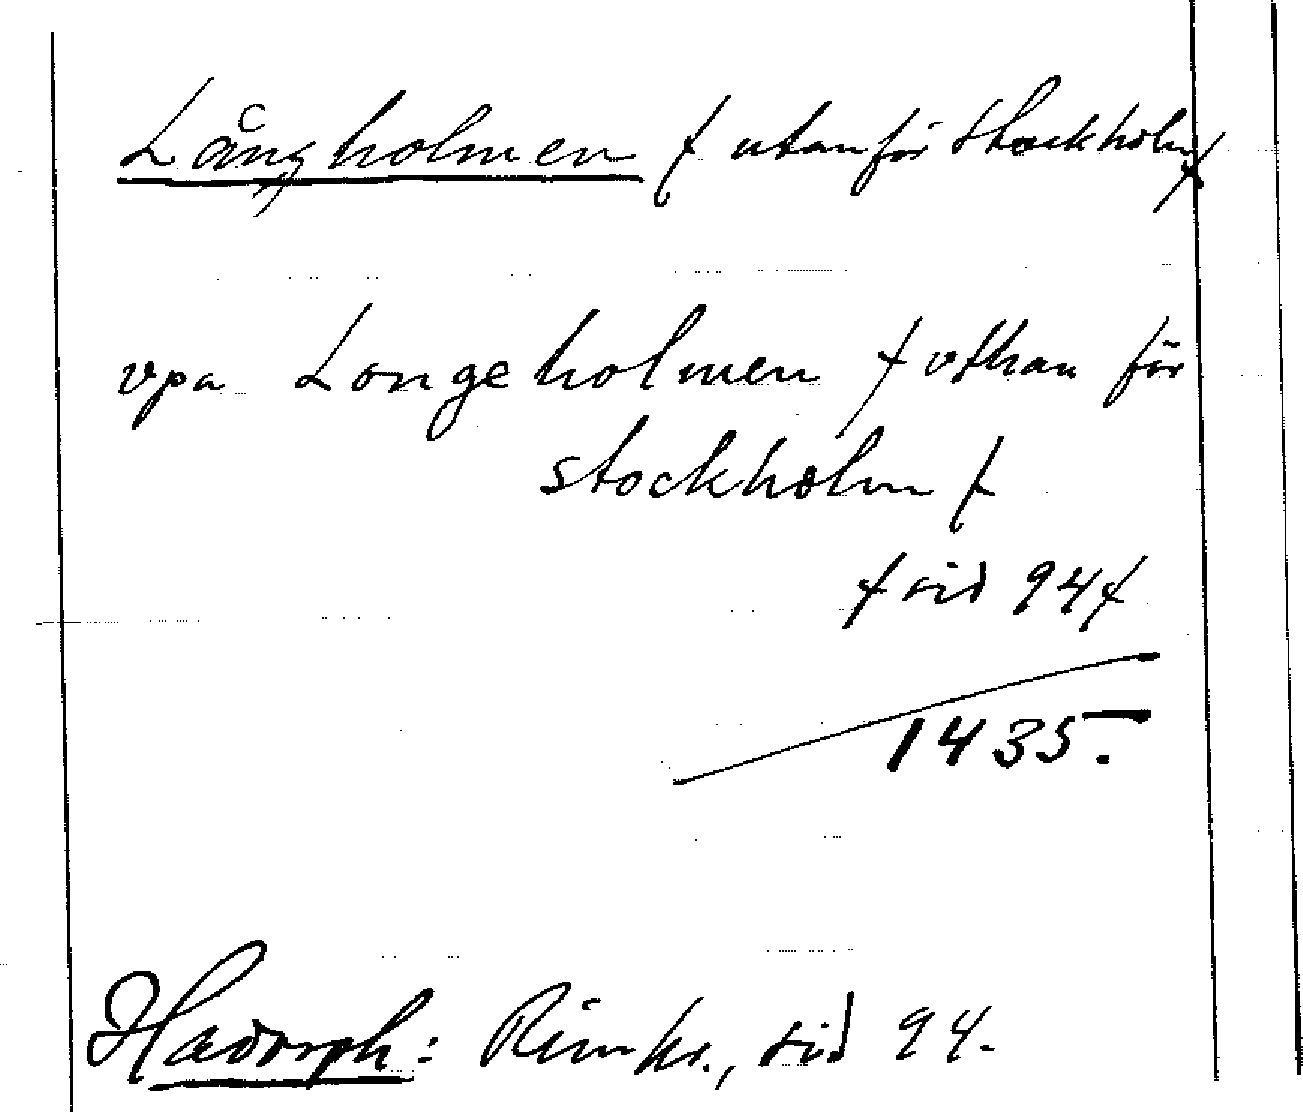 Långholmen / utanför Stockholm /
vpa Longeholmen / vthan för
stockholm /
/ sid 94 /
1435.
Hadorph: Rimkr., sid 94.